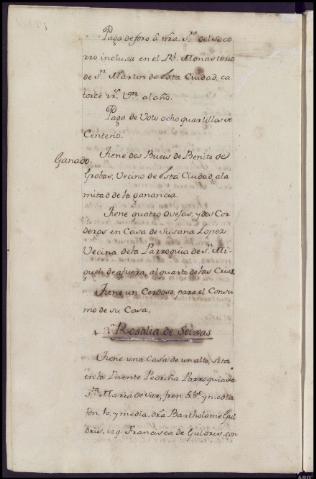 Paga de foro á nra Sra del Soco
rro inclusa en el Rl. Monasterio
de Sn. Martin de esta Ciudad, ca
torce rs. Vn. al año.
Paga de Voto ocho quartillas de
Centeno.
Ganado. Tiene dos Bueis de Benito de
Grobas, Vecino de esta Ciudad, ala
mitad de la ganancia.
Tiene quatro Ovejas, y dos Cor
deros en Casa de Susana Lopez
Vecina dela Parroquia de Sn. Mi
guel de afuera, al quarto de las Crias
Tiene un Cerdoso, para el Consu
mo de su Casa.
Rosalia de Seixas
Tiene una Casa de un alto, Sita
en la Puente Pedriña Parroquia de
Sta. Maria de fren. y
fondo, y media, dra. Bartholome Gul
dris, izq. Francisca de Guldris, con